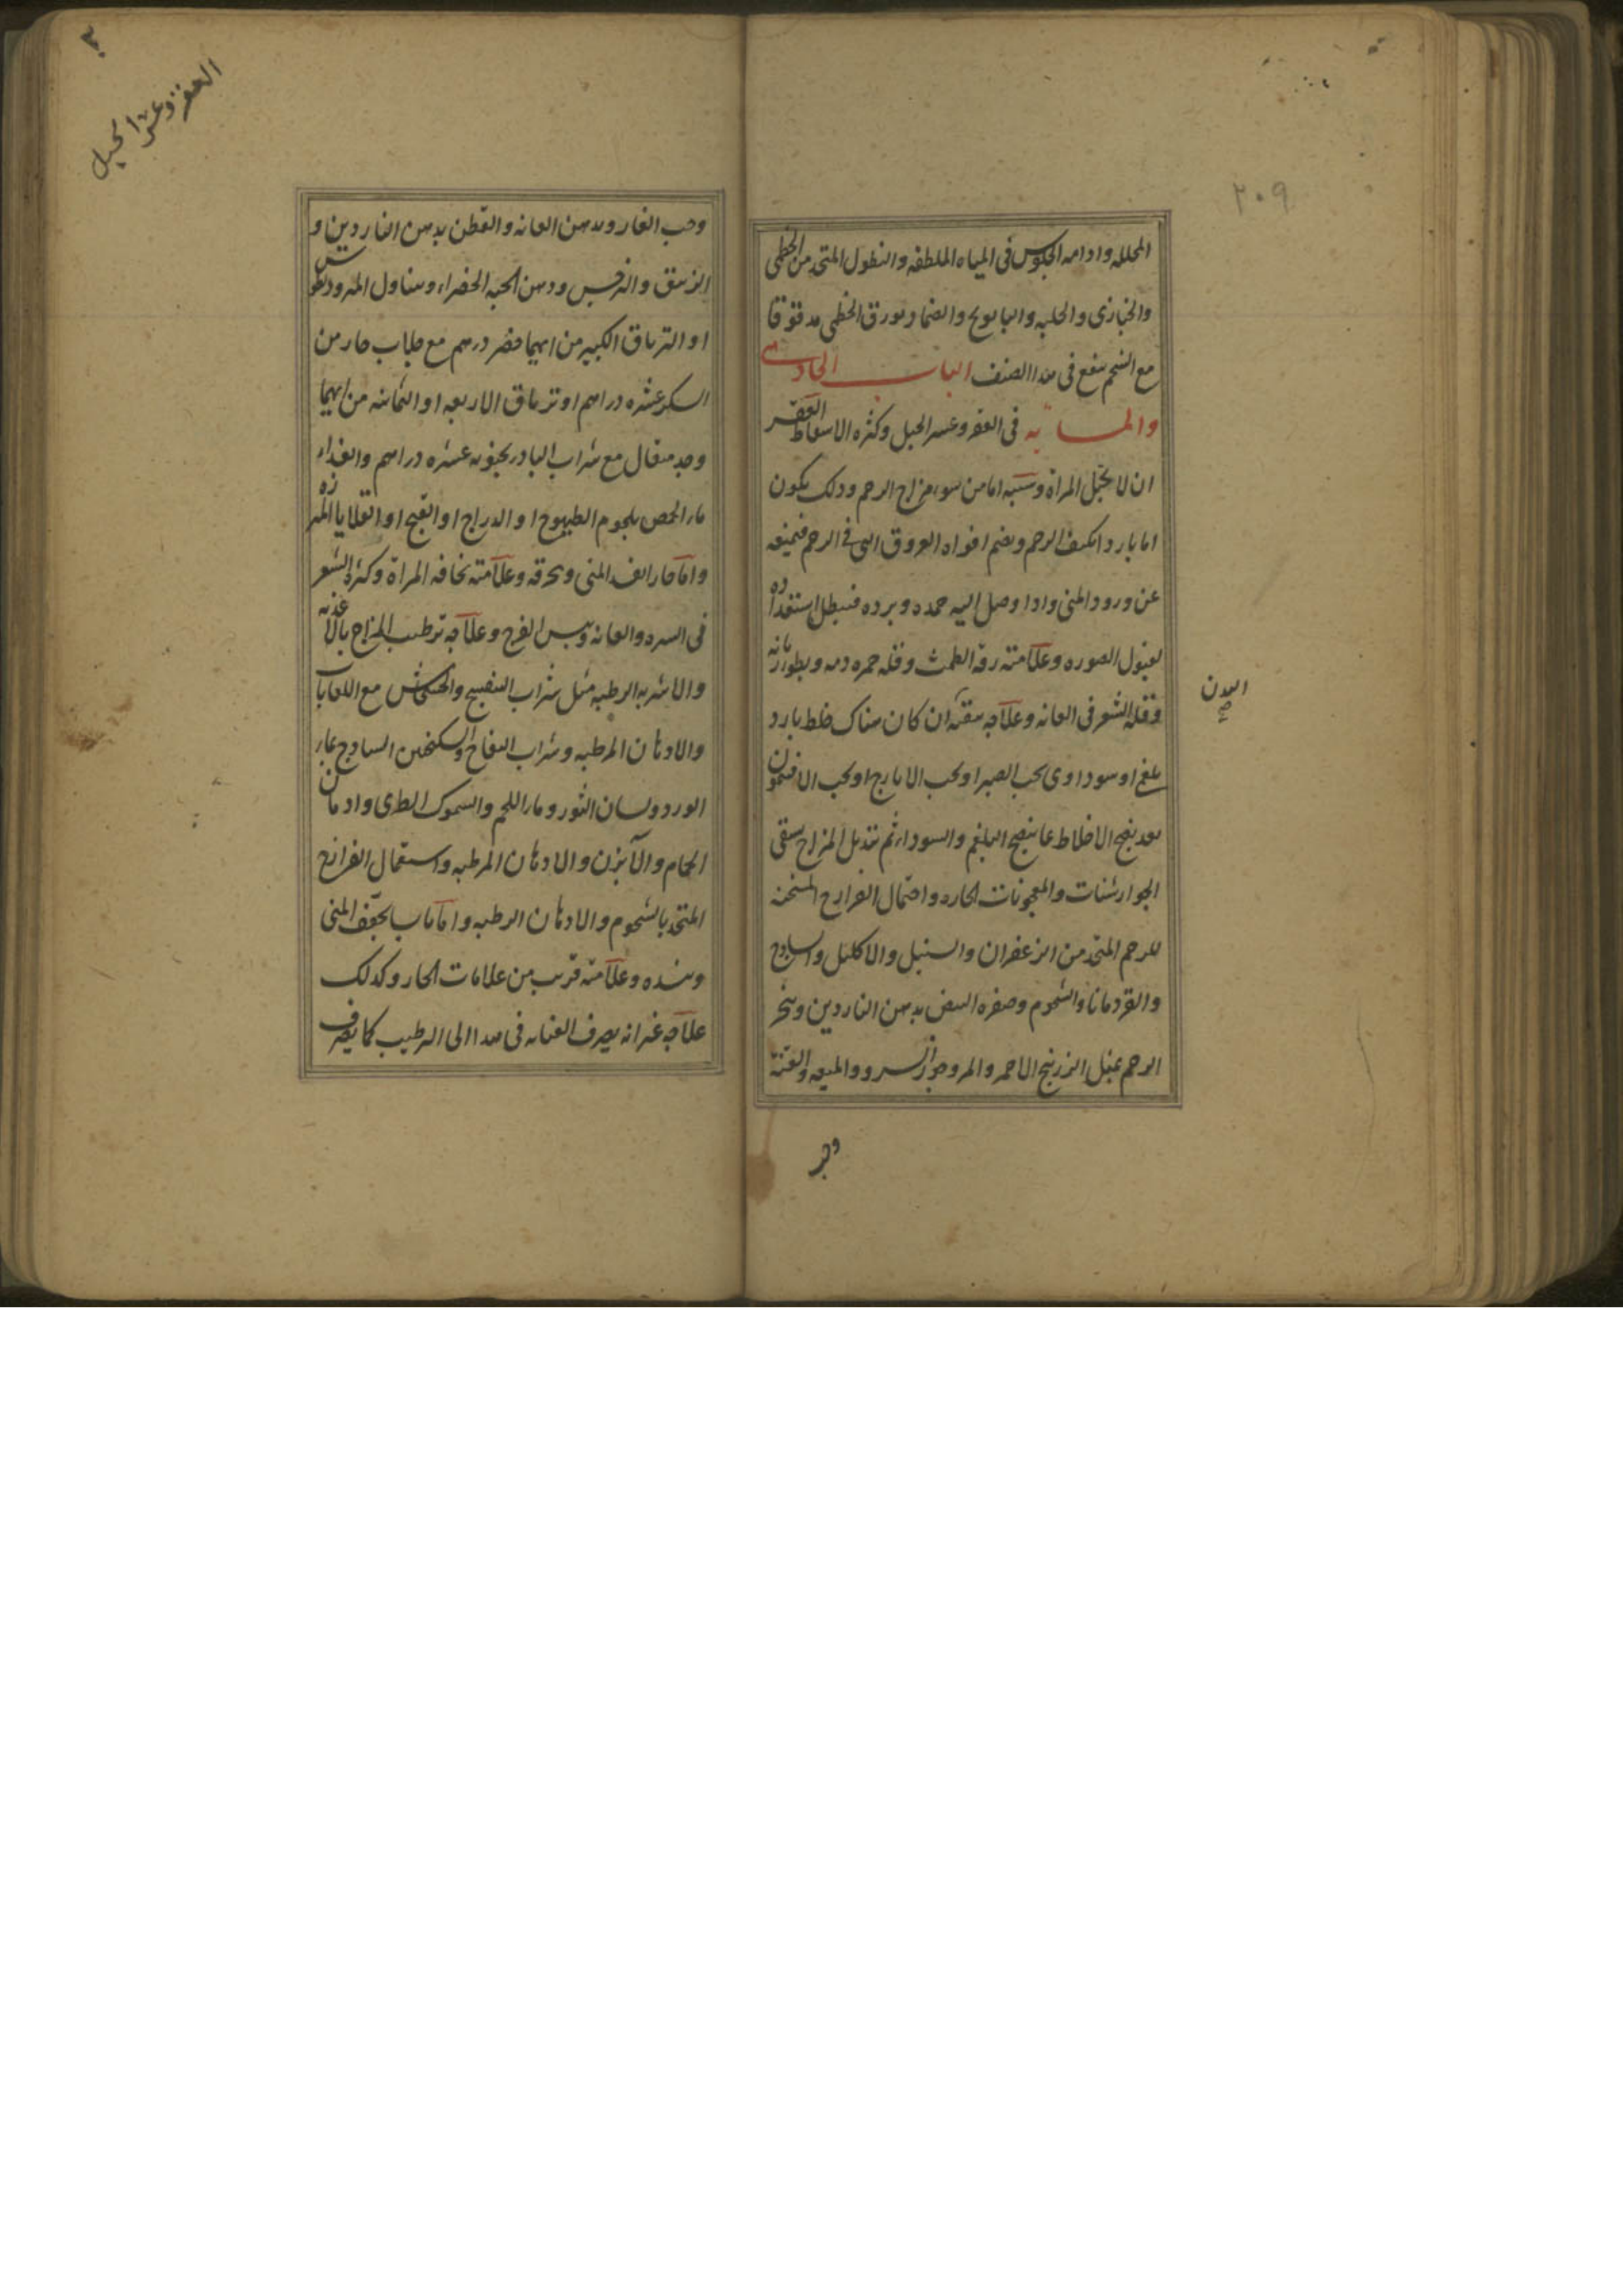 ٢٠٩
المحلله وادامه الجلوس فى المياه الملطفه والنطول المتخذ من الخطمى
والخبازى والحلبه والبابونج والضماد بورق الخطمى مدقوقا
مع الشحم ينفع فى هذا الصنف الباب الحادى
والمائه فى العقر وعسر الحبل وكثره الاسقاط العقر
ان لا تحبل المراة وسببه اما من سوء مزاج الرحم وذلك يكون
اما باردا يكثف الرحم ويضم افواه العروق التى فى الرحم فيمنعه
عن ورود المنى واذا وصل اليه جمده وبرده فيبطل استعداده
لقبول الصوره وعلامته رقة الطمث وقله حمره دمه وبطو ازمانه
وقله الشعر فى العانه وعلاجه ينقى ان كان هناك خلط بارد
البدن صح
بلغم او سوداوى بحب الصبر او بحب الايارج او بحب الافتيمون
بعد نضج الاخلاط بما ينضج البلغم والسوداء ثم تبديل المزاج بسقى
الجوارشنات والمعجونات الحاره واحتمال الفرازج المسخنه
للرحم المتخذ من الزعفران والسنبل والاكليل والساذج
والقردمانا والشحوم وصفره البيض بدهن الناردين وتبخر
الرحم بمثل الزرنيخ الاحمر والمر وجوز السرو والميعه والقنه
وحب
العقر وعسر الحبل
وحب الغار وبدهن العانه والقطن بدهن الناردين و
الزنبق والنرجس ودهن الحبه الخضراء وتناول المثروديطوش
او الترياق الكبير من ايهما حضر درهم مع جلاب حار من
السكر عشره دراهم او ترياق الاربعه او الثمانيه من ايهما
وجد مثقال مع شراب البادرنجبويه عشره دراهم والغذاء
ماء الحمص بلحوم الطيهوج او الدراج او القبج او القلايا المبزره
واما حارا يفسد المنى ويحرقه وعلامته نحافه المراة وكثرة الشعر
فى السره والعانه ويبس الفرج وعلاجه ترطيب المزاج بالاغذيه
والاشربه الرطبه مثل شراب البنفسج والخشخاش مع اللعابات
والادهان المرطبه وشراب التفاح والسكنجبين الساذج بماء
الورد ولسان الثور وماء اللحم والسموك الطرى وادمان
الحمام والآبزن والادهان المرطبه واستعمال الفرازج
المتخذ بالشحوم والادهان الرطبه واما يابسا يجفف المنى
وعلامته قريب من علامات الحار وكذلك
علاجه غير انه يصرف العنايه فى هذا الى الترطيب كما يصرف